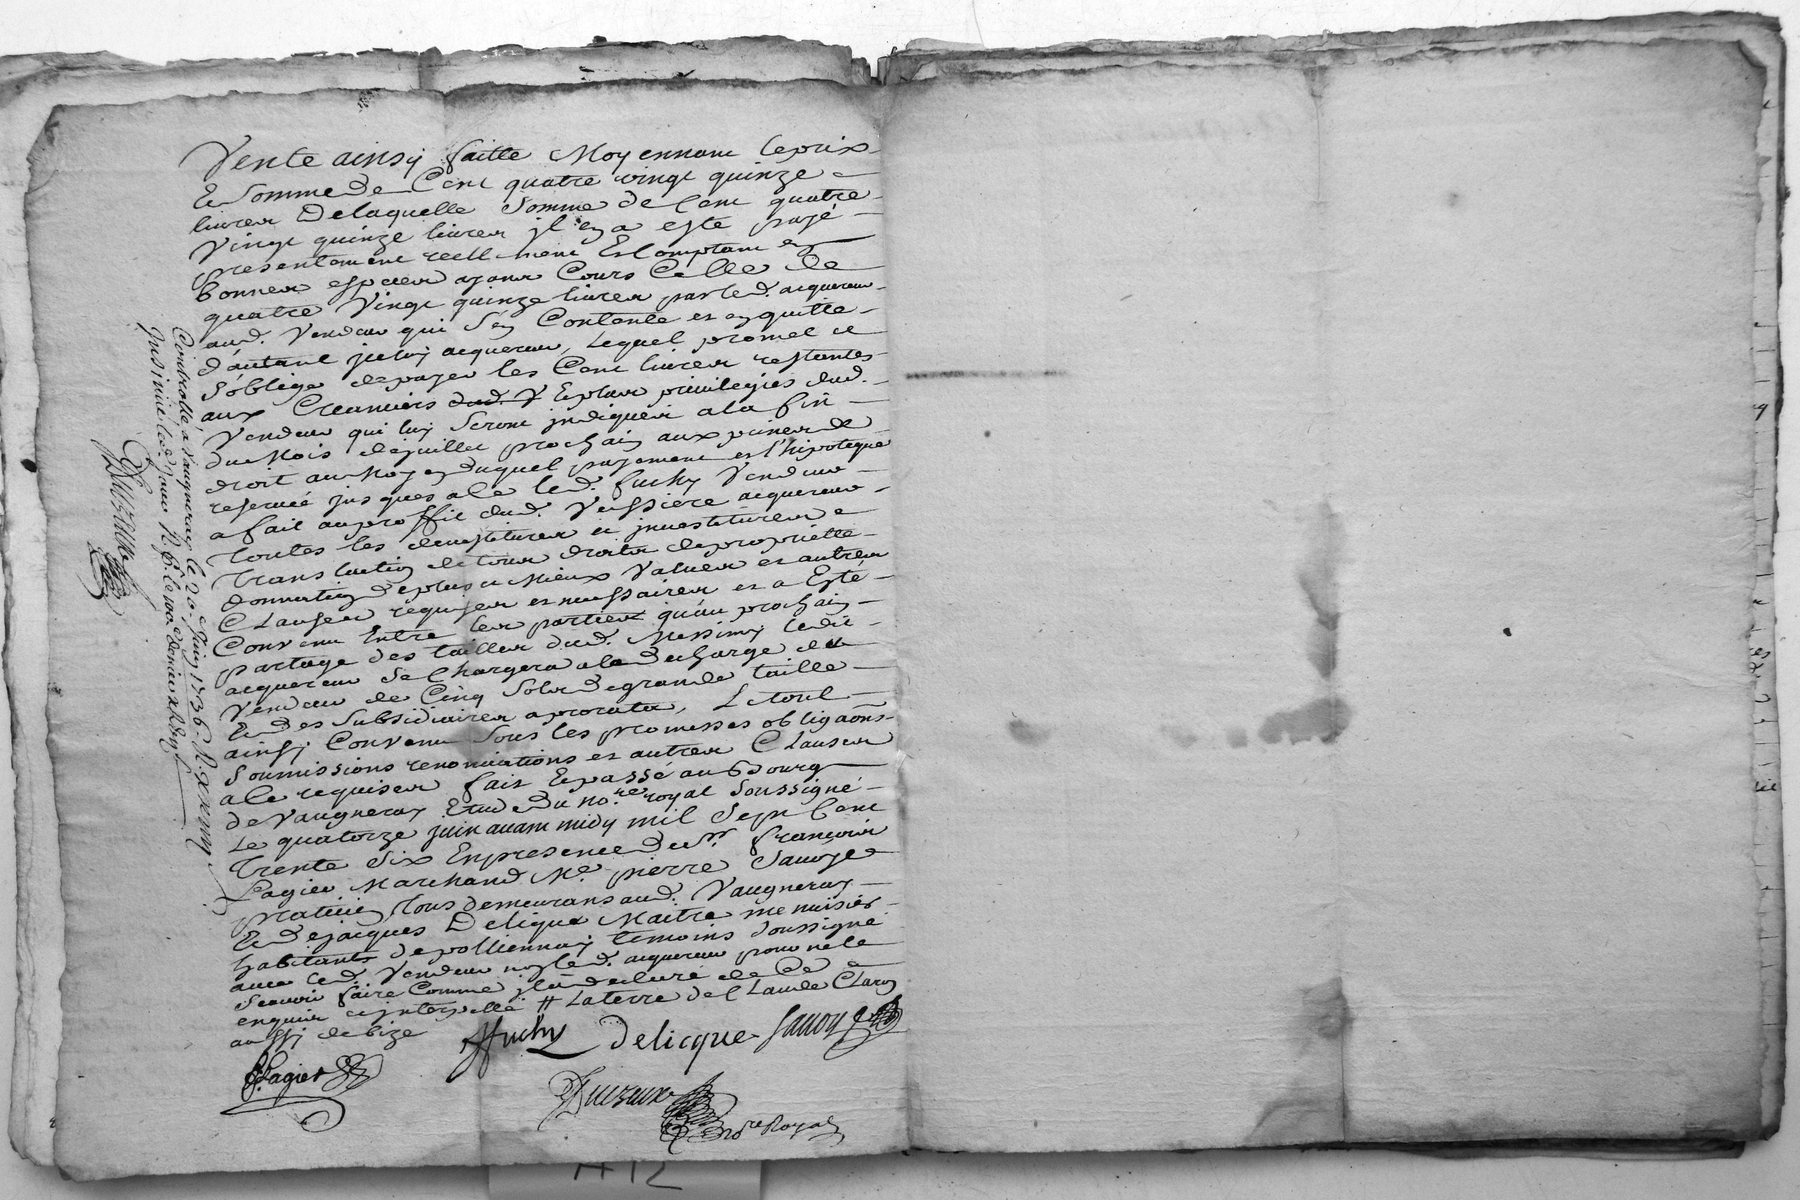 Vente ainsy faitte Moyennant le prix
Et Somme de Cent quatre vingt quinze
livres De laquelle Somme de Cent quatre
Vingt quinze livres jl en a esté payé
presentement reellement Et Comptant en
bonnes especes ayant Cours Celle de
quatre Vingt quinze livres par led. acquereur
aud. Vendeur qui s'en Contente et en quitte
d'autant jceluy acquereur, Lequel promet et
s'oblige de payer les Cent livres restantes
aux Creanciers dud. V Et plus privilegiés dud.
Vendeur qui luy Seront jndiqués a la fin
du Mois de juillet prochain aux peines de
droit au Moyen duquel payement et l'hipoteque
reservée jusques a ce led. fuchy Vendeur
a fait au proffit dud. Veissiere acquereur
toutes les demestitures et jnvestitures
translation de tous droits de proprietté
donnation de plus et Mieux Values et autres
Clauses requises et necessaires et a Esté
Convenu Entre les parties qu'au prochain
partage des tailles dud. Messimy ledit
acquereur se Chargera a la decharge du
Vendeur de Cinq Sols de grande taille
Et des Subsidiaires a prorata, Le tout
ainsy Convenu Sous les promesses obligaons
Soumissions renonciations et autres Clauses
a ce requises fait Et passé au Bourg
de Vaugneray Etude du no.re royal Soussigné
Le quatorze juin avant midy mil Sept Cent
Trente Six En presence de Sr. françois
Lagier Marchand Me. pierre Savoye
praticien tous demeurans aud. Vaugneray
Et de jacques Delique Maitre menuisier
habitants de pollionnay temoins Soussigné
avec led. Vendeur non led. acquereur pour ne le
Scavoir faire Comme jl a declaré de Ce
enquis et jnterpellé # La terre de Claude Claron
aussy de bize
ffuchy Delicque Savoye
Lagier
no.re Royal
Controllé a Vaugneray le 20e Juin 1736. R.